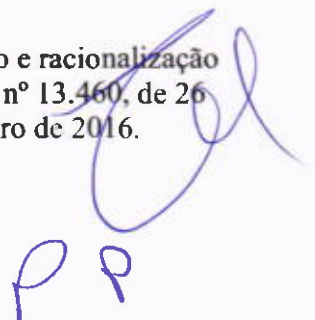 o e racionalização
nº 13.460, de 26
ro de 2016.